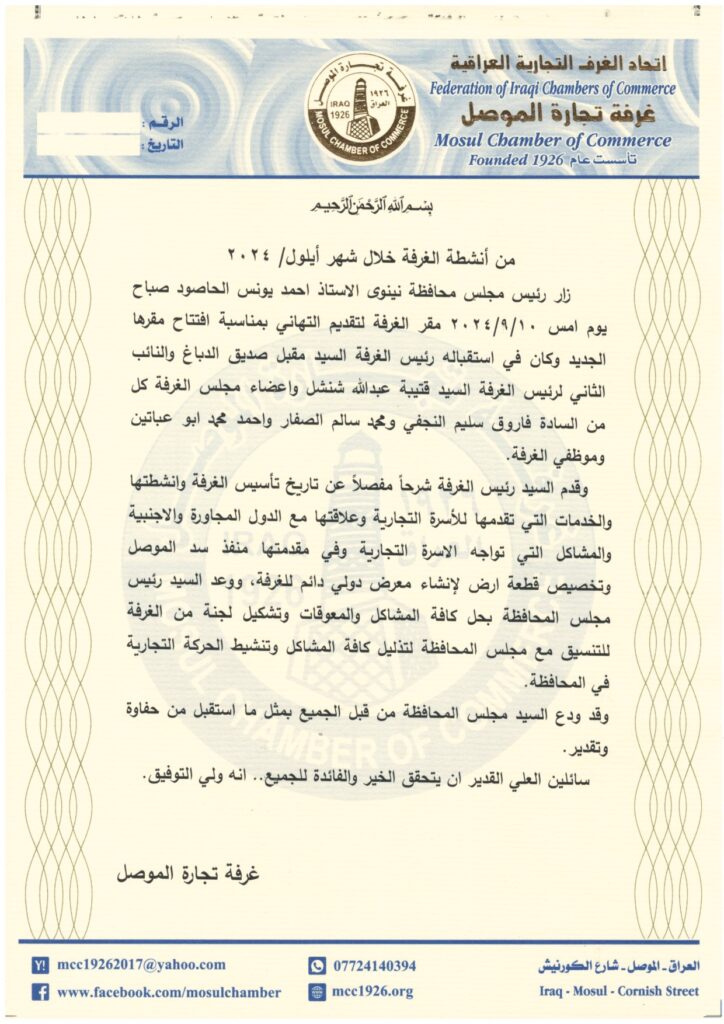 اتحاد الغرف التجارية العراقية
Federation of Iraqi Chambers of Commerce
غرفة تجارة الموصل
Mosul Chamber of Commerce
Founded 1926 تأسست عام
غرفة تجارة الموصل
IRAQ
1926
١٩٢٦
العراق
MOSUL CHAMBER OF COMMERCE
الرقم :
التاريخ :
بسم الله الرحمن الرحيم
من أنشطة الغرفة خلال شهر أيلول/ ٢٠٢٤
زار رئيس مجلس محافظة نينوى الاستاذ احمد يونس الحاصود صباح
يوم امس ٢٠٢٤/٩/١٠ مقر الغرفة لتقديم التهاني بمناسبة افتتاح مقرها
الجديد وكان في استقباله رئيس الغرفة السيد مقبل صديق الدباغ والنائب
الثاني لرئيس الغرفة السيد قتيبة عبدالله شنشل واعضاء مجلس الغرفة كل
من السادة فاروق سليم النجفي ومحمد سالم الصفار واحمد محمد ابو عباتين
وموظفي الغرفة.
وقدم السيد رئيس الغرفة شرحاً مفصلاً عن تاريخ تأسيس الغرفة وانشطتها
والخدمات التي تقدمها للأسرة التجارية وعلاقتها مع الدول المجاورة والاجنبية
والمشاكل التي تواجه الاسرة التجارية وفي مقدمتها منفذ سد الموصل
وتخصيص قطعة ارض لإنشاء معرض دولي دائم للغرفة، ووعد السيد رئيس
مجلس المحافظة بحل كافة المشاكل والمعوقات وتشكيل لجنة من الغرفة
للتنسيق مع مجلس المحافظة لتذليل كافة المشاكل وتنشيط الحركة التجارية
في المحافظة.
وقد ودع السيد مجلس المحافظة من قبل الجميع بمثل ما استقبل من حفاوة
وتقدير.
سائلين العلي القدير ان يتحقق الخير والفائدة للجميع.. انه ولي التوفيق.
غرفة تجارة الموصل
العراق - الموصل - شارع الكورنيش
Iraq - Mosul - Cornish Street
07724140394
mcc1926.org
mcc19262017@yahoo.com
www.facebook.com/mosulchamber